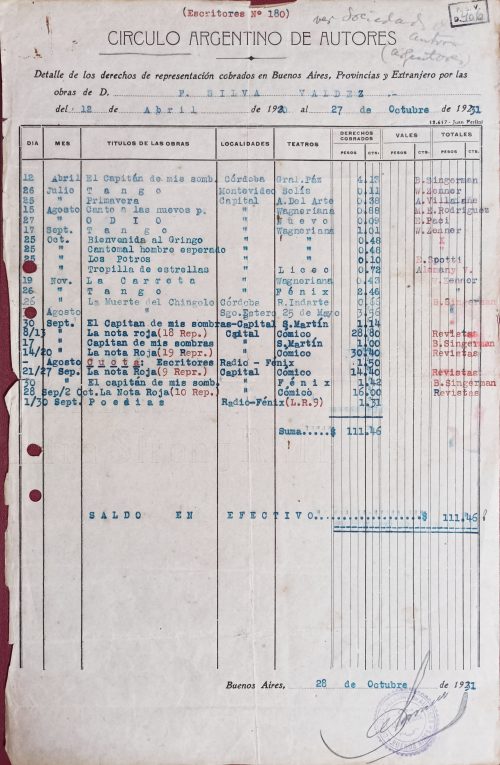 (Escritores Nº 180)
ver Sociedad
CIRCULO ARGENTINO DE AUTORES
(argentores)
Detalle de los derechos de representación cobrados en Buenos Aires, Provincias y Extranjero por las
obras de D. F. SILVA VALDEZ .-
del 12 de Abril de 1920 al 27 de Octubre de 1931
12.617 - Juan Perfini
DIA MES TITULOS DE LAS OBRAS LOCALIDADES TEATROS DERECHOS COBRADOS VALES TOTALES
PESOS CTS. PESOS CTS. PESOS CTS.
12 Abril El Capitán de mis somb. Córdoba Gral.Páz 4.13 B.Singerman
26 Julio T a n g o Montevideo Solís 0.11 W.Zenner
25 " Primavera Capital A.Del Arte 0.38 A.Villalañe
15 Agosto Canto a las nuevos p. " Wagneriana 0.88 M.E.Rodriguez
27 " O D I O " Nuevo 0.09 B.Paci
17 Sept. T a n g o " Wagneriana 1.01 W.Zenner
25 Oct. Bienvenida al Gringo " " 0.48 X
25 " Cantomal hombre esperado " " 0.48
25 " Los Potros " " 0.10 E.Spotti
" Tropilla de estrellas " Liceo 0.72 Alemany V.
19 Nov. L a C a r r e t a " Wagneriana 0.43 W.Zenner
26 " T a n g o " F é n i x 2.46 "
26 " La Muerte del Chingolo Córdoba R.Indarte 0.66 B.Singerman
Agosto " Sgo.Estero 25 de Mayo 3.56 "
30 Sept. El Capitan de mis sombras-Capital S.Martín 1.14
8/13 " La nota roja(18 Repr.) Cgital Cómico 28.80 Revistas
17 " Capitan de mis sombras " S.Martín 1.00 B.Singerman
14/20 " La nota Roja(19 Repr.) " Cómico 30.40 Revistas
- Agosto C u o t a : Escritores Radio - Fénix 1.50
21/27 Sep. La nota Roja(9 Repr.) Capital Cómico 14.40 Revistas
30 " El capitán de mis somb. " F é n i x 1.42 B.Singerman
28 Sep/2 Oct.La Nota Roja(10 Rep.) " Cómico 16.00 Revistas
1/30 Sept. P o e s í a s Radio-Fénix(L.R.9) 1.31
Suma.....$ 111.46
S A L D O E N E F E C T I V O..................$ 111.46
Buenos Aires, 28 de Octubre de 1931